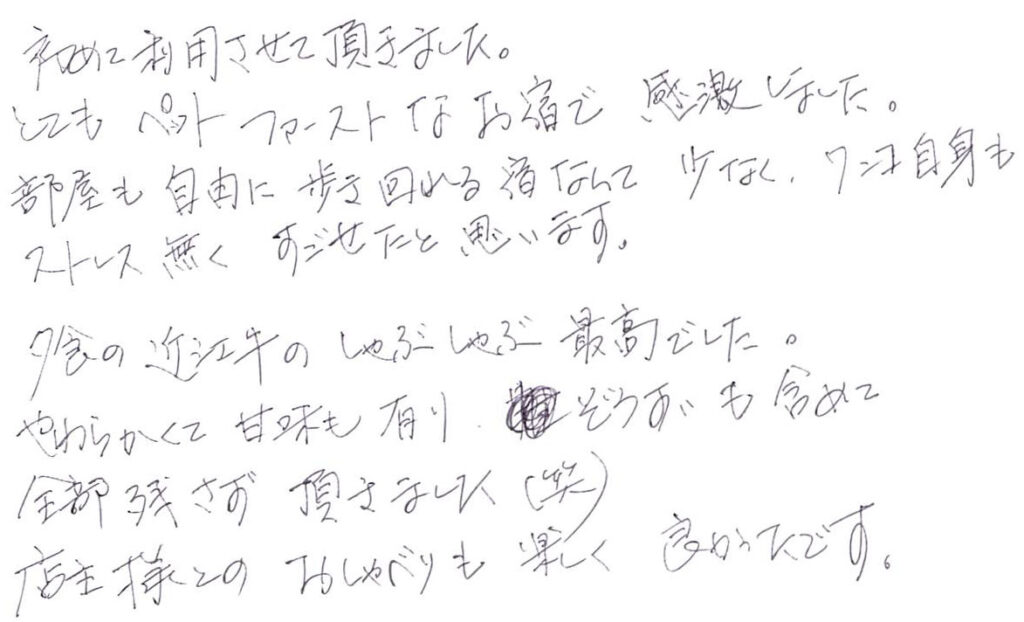 初めて利用させて頂きました。
とてもペットファーストなお宿で 感激しました。
部屋も自由に歩き回れる宿なんて 少なく、ワンコ自身も
ストレス無く すごせたと思います。
夕食の近江牛のしゃぶしゃぶ最高でした。
やわらかくて甘味も有り、ぞうすいも含めて
全部残さず 頂きました(笑)
店主様とのおしゃべりも楽しく 良かったです。